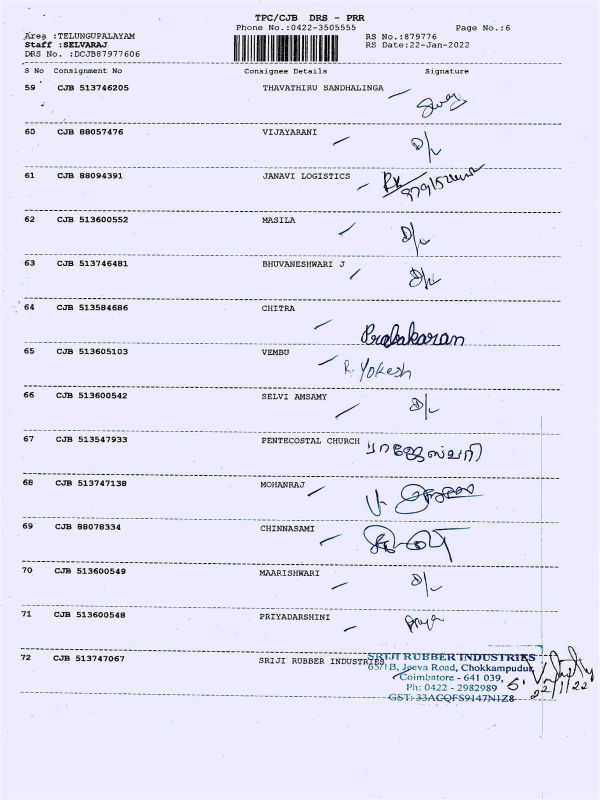 TPC/CJB DRS - PRR
Phone No.:0422-3505555 Page No.:6
Area :TELUNGUPALAYAM RS No.:879776
Staff :SELVARAJ RS Date:22-Jan-2022
DRS No. :DCJB87977606
S No Consignment No Consignee Details Signature
59 CJB 513746205 THAVATHIRU SANDHALINGA
60 CJB 88057476 VIJAYARANI D/L
61 CJB 88094391 JANAVI LOGISTICS
62 CJB 513600552 MASILA D/L
63 CJB 513746481 BHUVANESHWARI J D/L
64 CJB 513584686 CHITRA Prabakaran
65 CJB 513605103 VEMBU R. Yokesh
66 CJB 513600542 SELVI AMSAMY D/L
67 CJB 513547933 PENTECOSTAL CHURCH
68 CJB 513747138 MOHANRAJ
69 CJB 88078334 CHINNASAMI
70 CJB 513600549 MAARISHWARI D/L
71 CJB 513600548 PRIYADARSHINI Priya
72 CJB 513747067 SRIJI RUBBER INDUSTRIES
SRIJI RUBBER INDUSTRIES
65/1B, Jeeva Road, Chokkampudur,
Coimbatore - 641 039,
Ph: 0422 - 2982989
GST: 33ACQFS9147N1Z8
22/1/22